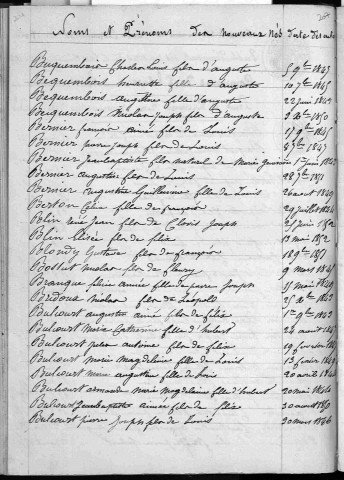 Noms et Prénoms des nouveaux Nés Date des actes
Becquembois Charles Louis fils d'auguste 5 9bre 1843
Becquembois henriette fille d'auguste 10 7bre 1845
Becquembois angélina fille d'auguste 22 juin 1849
Becquembois Nicolas joseph fils d'auguste 9 Xbre 1850
Bernier francois aimé fils de Louis 17 9bre 1845
Bernier pierre joseph fils de Louis 4 7bre 1847
Bernier jean baptiste fils naturel de Marie 1er juin
Bernier augustin fils de Louis 28 7bre 1851
Bernier augustine Guillemine fille de Louis 26 aout 1849
Berton fille de françois 29 juillet 1844
Blin réné Jean fils de Clovis Joseph 21 juin 1852
Blin Elisée fils de félix 13 mai 1852
Blondy Gustave fils de françois 18 9bre 1851
Bottet nicolas fils de fleury 9 mars 1841
Branque aimée fille de pierre joseph 11 mai 1849
Bridoux nicolas fils de Léopold 21 Xbre 1842
Bulcourt augustin aimé fils de félix 1er 9bre 1843
Bulcourt Marie Catherine fille d'hubert 24 aout
Bulcourt pierre antoine fils de félix 19 février
Bulcourt marie magdeleine fille de Louis 13 février
Bulcourt marie augustine fille de Louis 20 avril
Bulcourt armande marie magdeleine fille d'hubert 20 mai 1850
Bulcourt jean baptiste aimé fils de félix 30 aout 1850
Bulcourt pierre joseph fils de Louis 30 mars 1846